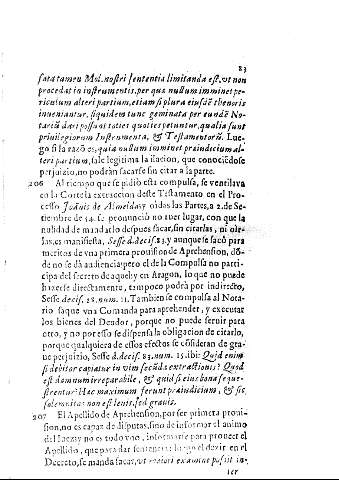 83
sata tamen Mol. nostri sententia limitanda est, vt non
procedat in instrumentis, per quæ nullum imminet pe-
riculum alteri partium, etiam si plura eiusdē thenoris
inueniantur, siquidem tunc geminata per eundē No-
tariū dari possunt toties quoties petuntur, qualia sunt
priuilegiorum Instrumenta, & Testamentorū. Lue-
go si la razō es, quia nullum imminet præiudicium al-
teri partium, sale legitima ilacion, que conociēdose
perjuizio, no podrán sacarse sin citar a la parte.
206 Al tiempo que se pidiò esta compulsa, se ventilava
en la Corte la extraccion deste Testamento en el Pro-
cesso Joānis de Almeida, y oidas las Partes, a 2. de Se-
tiembre de 54. se pronunciò no auer lugar, con que la
nulidad de mandarlo despues sacar, sin citarlas, ni oir-
las, es manifiesta, Sesse d. decis. 23. y aunque se sacò para
meritos de vna primera provision de Aprehension, dō-
de no se dà audiencia; pero el de la Compulsa no parti-
cipa del secreto de aquel y en Aragon, lo que no puede
hazerse directamente, tampoco podrà indirecto,
Sesse decis. 28. num. 11. Tambien se compulsa al Nota-
rio saque vna Comanda para aprehender, y executar
los bienes del Deudor, porque no puede seruir para
otto, y no por esso se dispensa la obligacion de citarlo,
porque qualquiera de essos efectos se cōsideran de gra-
ue perjuizio, Sesse d. decis. 83. num. 15. ibi: Quid enim
si debitor capiatur in vim secūdæ extractionis? Quod
est damnum irreparabile, & quid si eius bona seque-
strentur? Hæc maximum ferunt præiudicium, & sic,
solemnitas non est lenis, sed grauis.
207 El Apellido de Aprehension, por ser primera provi-
sion, no es capaz de disputas, sino de informar el animo
del Iuez; y no es todo vno, informarle para proueer el
Apellido, que para dar sentencia: luego el dezir en el
Decreto, se manda sacar, vt
ter